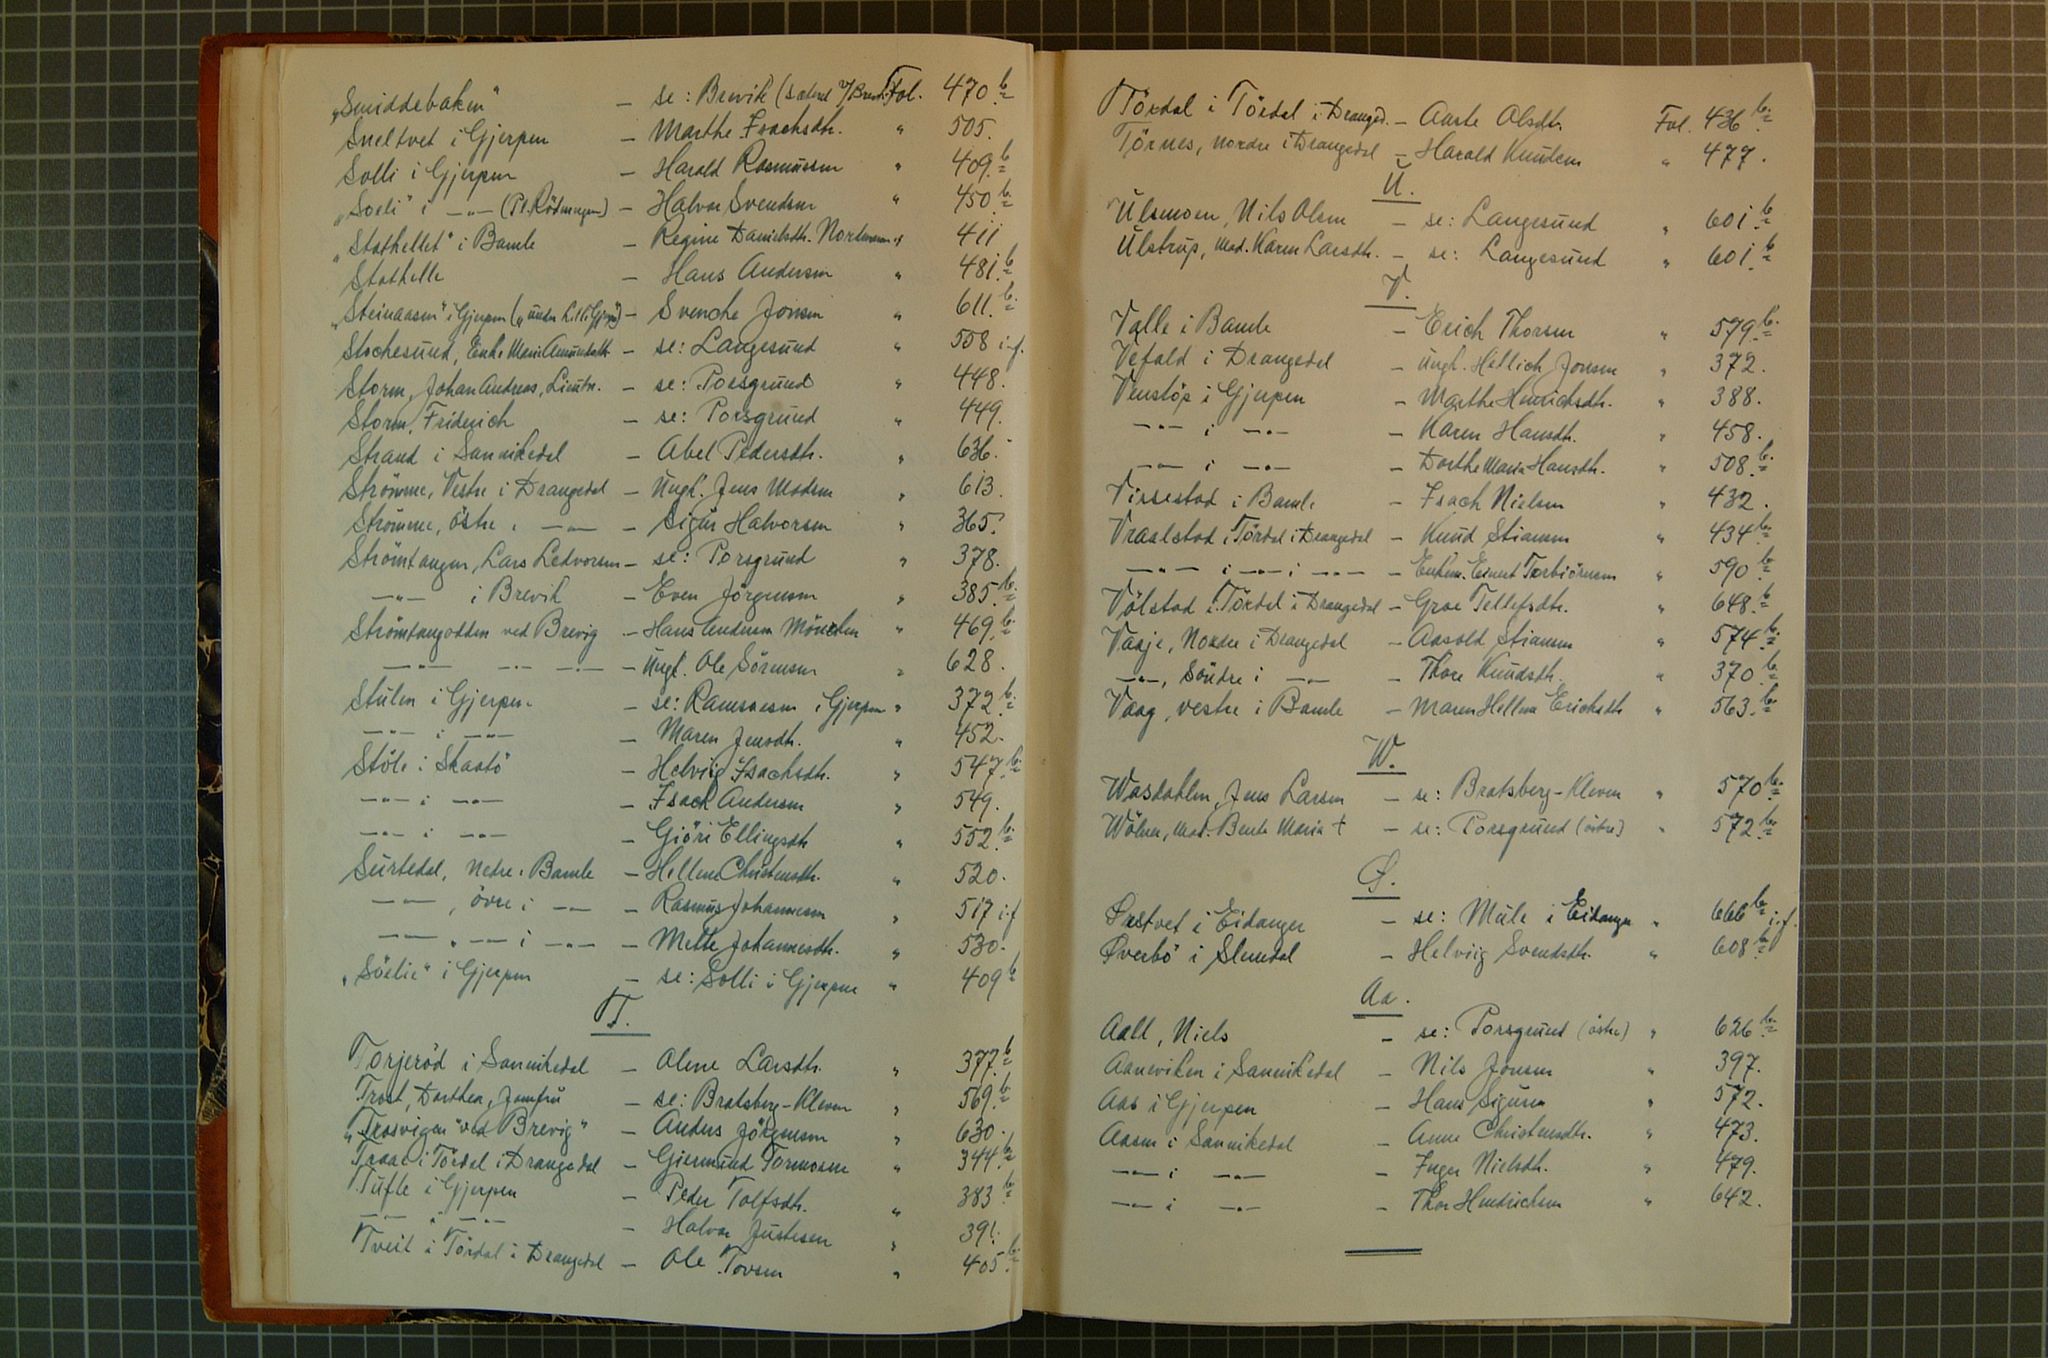 „Smiddebaken" – se: Brevik ( Fol. 470 b.
Sneltvet i Gjerpen – Marthe Isachsdtr. " 505.
Solli i Gjerpen – Harald Rasmussen " 409. b
„Soeli" i —"— – Halvor Svendsen " 450 b.
„Stathellet" i Bamle – Regine Danielsdtr. Nordmann " 411
Stathelle – Hans Andersen " 481. b
„Steinaasen" i Gjerpen – Svenche Jonsen " 611. b.
Stochesund, Enke Marie Amundsdtr. – se: Langesund " 558 i.f.
Storm, Johan Andreas, – se: Porsgrund " 448.
Storm, Friderich – se: Porsgrund " 449.
Strand i Sannikedal – Abel Pedersdtr. " 636.
Strömme, Vestre i Drangedal – Ungk. Jens Madsen " 613.
Strömme, östre i —"— – Sigur Halvorsen " 365.
Strömtangen, Lars Ledvorsen – se: Porsgrund " 378.
—"— i Brevik – Even Jörgensen " 385. b.
Strömtangodden ved Brevig – Hans Andersen " 469. b
—"— —"— —"— – Ungk. Ole Sörensen " 628.
Stulen i Gjerpen – se: Ramsaasen i Gjerpen " 372. b.
—"— i —"— – Maren Jensdtr. " 452.
Stöle i Skaatö – Helviig Isachsdtr. " 547. b.
—"— i —"— – Isach Andersen " 549.
—"— i —"— – Giöri Ellingsdtr. " 552. b.
Surtedal, nedre i Bamle – Hellene Christensdtr. " 520.
—"—, övre i —"— – Rasmus Johannesen " 517 i.f.
—"— " —"— i —"— – Mette Johannesdtr. " 530.
„Söelie" i Gjerpen – se: Solli i Gjerpen " 409 b
T.
Torjeröd i Sannikedal – Olene Larsdtr. " 377. b
Trost, Dorthea, Jomfru – se: Bratsberg-Kleven " 569. b.
„Trosvigen" ved Brevig" – Anders Jörgensen " 630.
Traae i Tördal i Drangedal – Giermund Tormosen " 344. b.
Tufte i Gjerpen – Peder Tolfsdtr. " 383 b.
—"— " —"— – Halvor Justesen " 391.
Tveit i Tördal i Drangedal – Ole Tovsen " 405. b.
Tördal i Tördal i Dranged. – Aaste Olsdtr. Fol. 436 b.
Törnes, nordre i Drangedal – Harald Knudsen " 477.
U.
Ulsmoen, Nils Olsen – se: Langesund " 601. b.
Ulstrup, Mad. Karen Larsdtr. – se: Langesund " 601. b
V.
Valle i Bamle – Erich Thorsen " 579. b.
Vefald i Drangedal – Ungk. Hellich Jonsen " 372.
Venstöp i Gjerpen – Marthe Henrichsdtr. " 388.
—"— i —"— – Karen Hansdtr. " 458.
—"— i —"— – Dorthe Maria Hansdtr. " 508. b.
Vissestad i Bamle – Isach Nielsen " 432.
Vraalstad i Tördal i Drangedal – Knud Stiansen " 434 b.
—"— i —"— i —"— – Enkem. Torbiörnsen " 590 b.
Völstad i Tördal i Drangedal – Groe Tellefsdtr. " 648. b
Vaaje, Nordre i Drangedal – Aasold Stiansen " 574. b.
—"—, Söndre i —"— – Thore Knudsdtr. " 370. b.
Vaag, vestre i Bamle – Maren Hellene Erichsdtr. " 563. b.
W.
Wasdahlen, Jens Larsen – se: Bratsberg-Kleven " 570 b.
Wölner, Mad. Bente Maria + – se: Porsgrund (östre) " 572. b.
Ø.
Øxstvet i Eidanger – se: Mule i Eidanger " 666 b i.f.
Øverbö i Slemdal – Helviig Svendsdtr. " 608 b.
Aa.
Aall, Niels – se: Porsgrund (östre) " 626 b.
Aaneviken i Sannikedal – Nils Jonsen " 397.
Aas i Gjerpen – Hans Sigursen " 572.
Aasen i Sannikedal – Anne Christensdtr. " 473.
—"— i —"— – Inger Nielsdtr. " 479.
—"— i —"— – Thor Hendrichsen " 642.